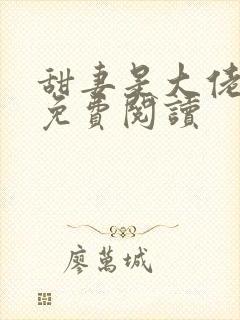 甜妻是大佬
免費閱讀
廖萬城